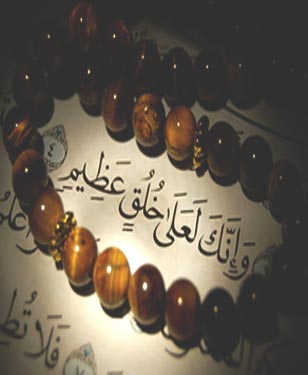 ٤
وَإِنَّكَ لَعَلَىٰ خُلُقٍ عَظِيمٍ
فَلَا تُطِ